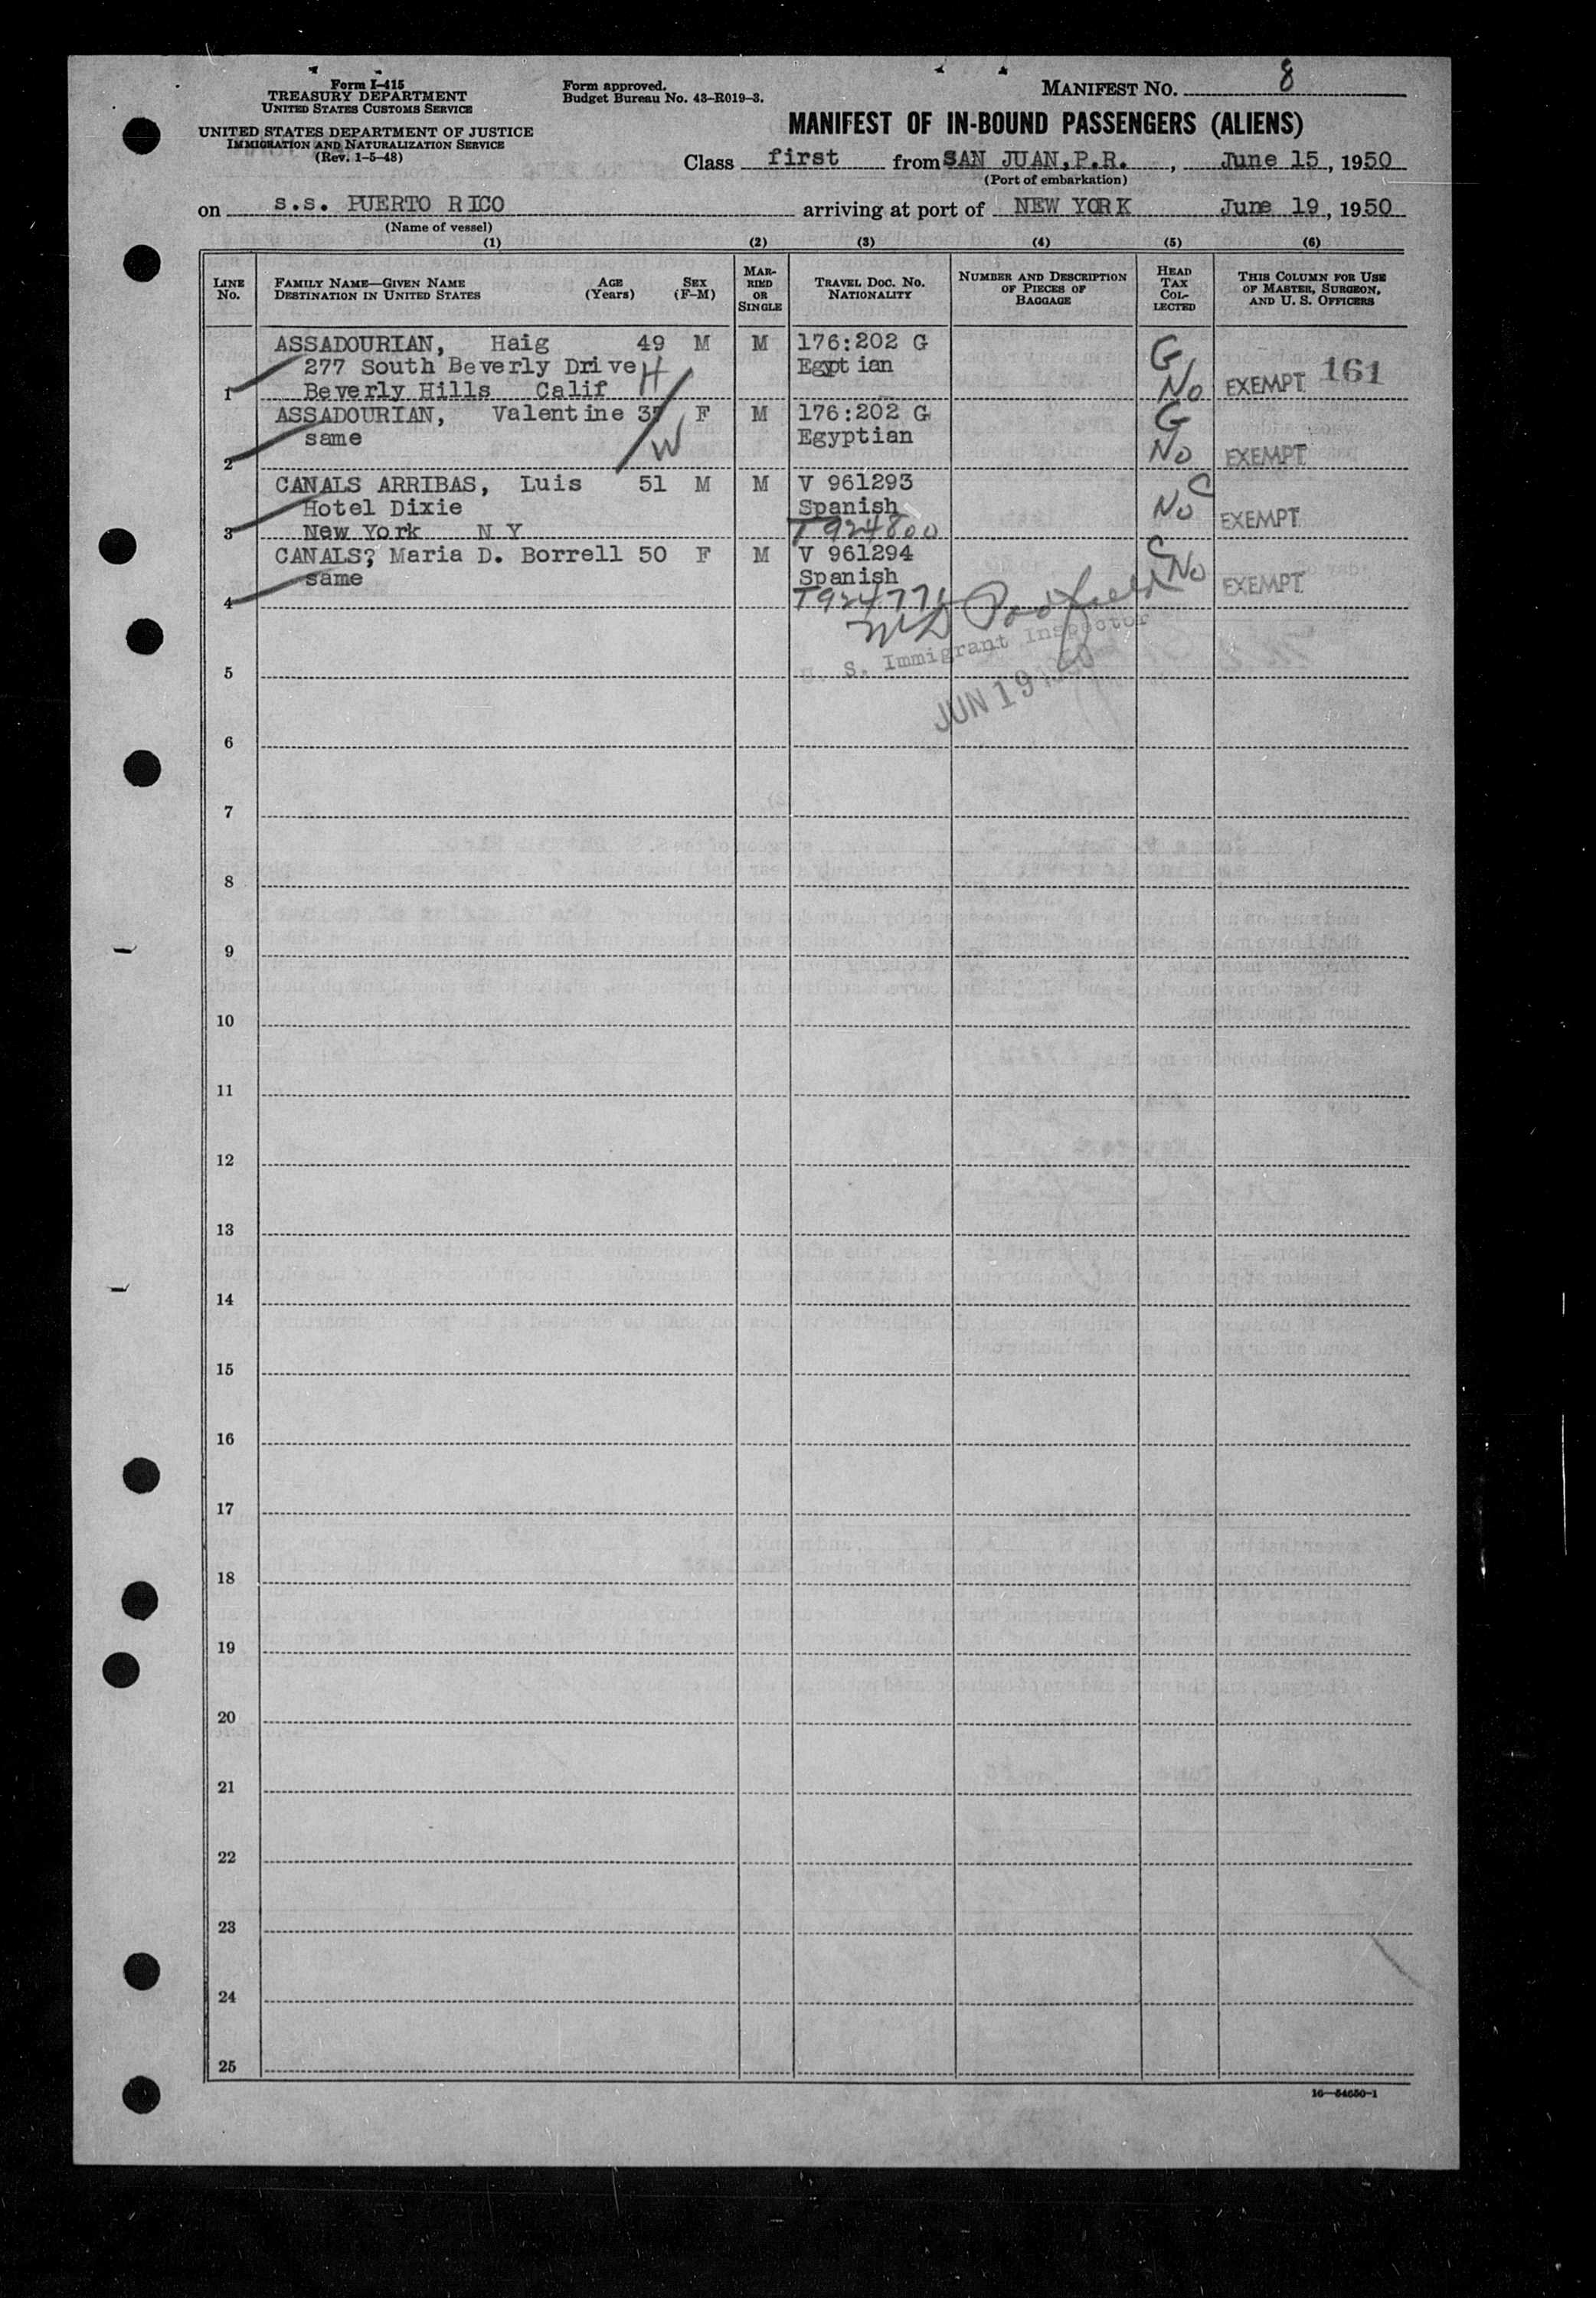 Form I-415
TREASURY DEPARTMENT
UNITED STATES CUSTOMS SERVICE
UNITED STATES DEPARTMENT OF JUSTICE
IMMIGRATION AND NATURALIZATION SERVICE
(Rev. 1-5-48)
Form approved.
Budget Bureau No. 43-R019-3.
MANIFEST NO. 8
MANIFEST OF IN-BOUND PASSENGERS (ALIENS)
Class first from SAN JUAN,P.R. , June 15, 1950
(Port of embarkation)
on s.s. PUERTO RICO arriving at port of NEW YORK June 19, 1950
(Name of vessel)
(1) (2) (3) (4) (5) (6)
LINE No.
FAMILY NAME—GIVEN NAME AGE SEX
DESTINATION IN UNITED STATES (Years) (F-M)
MAR-
RIED
OR
SINGLE
TRAVEL DOC. NO.
NATIONALITY
NUMBER AND DESCRIPTION
OF PIECES OF
BAGGAGE
HEAD
TAX
COL-
LECTED
THIS COLUMN FOR USE
OF MASTER, SURGEON,
AND U. S. OFFICERS
ASSADOURIAN, Haig 49 M M 176:202 G G
277 South Beverly Drive H Egypt ian
1 Beverly Hills Calif No EXEMPT 161
ASSADOURIAN, Valentine F M 176:202 G G
same W Egyptian
2 No EXEMPT
CANALS ARRIBAS, Luis 51 M M V 961293 C
Hotel Dixie Spanish No EXEMPT
3 New York N Y T924800
CANALS? Maria D. Borrell 50 F M V 961294 C
same Spanish No EXEMPT
4
U. S. Immigrant Inspector
5
JUN 19 1950
6
7
8
9
10
11
12
13
14
15
16
17
18
19
20
21
22
23
24
25
16—54650-1